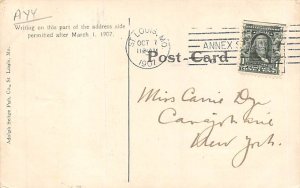 AYY
Writing on this part of the address side
permitted after March 1, 1907.
ST. LOUIS, MO.
OCT
1907
ANNEX
Post-Card
Adolph Selige Pub. Co., St. Louis, Mo.
Miss Carrie Dyr
Canajoharie
New York.